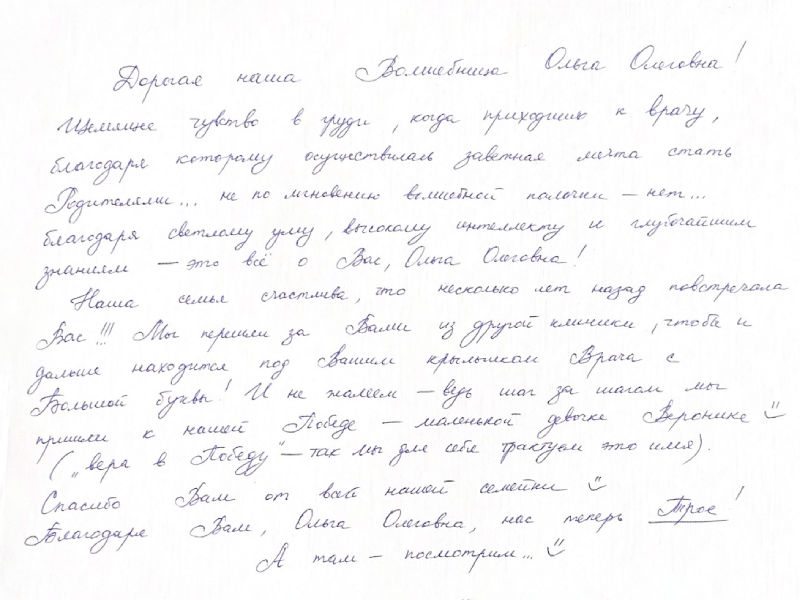 Дорогая наша Волшебница Ольга Олеговна!
Щемящее чувство в груди, когда приходишь к врачу,
благодаря которому осуществилась заветная мечта стать
Родителями... не по мгновению волшебной палочки – нет...
благодаря светлому уму, высокому интеллекту и глубочайшим
знаниям – это всё о Вас, Ольга Олеговна!
Наша семья счастлива, что несколько лет назад повстречала
Вас!!! Мы перешли за Вами из другой клиники, чтобы и
дальше находится под Вашим крылышком Врача с
Большой буквы! И не жалеем – ведь шаг за шагом мы
пришли к нашей Победе – маленькой девочке Веронике :)
(„вера в Победу“ – так мы для себя трактуем это имя).
Спасибо Вам от всей нашей семейки :)
Благодаря Вам, Ольга Олеговна, нас теперь Трое!
А там – посмотрим... :)